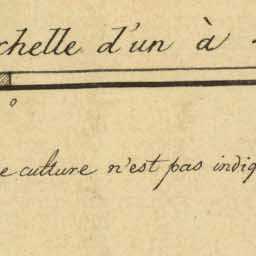 chelle d'un à
o
e culture n'est pas indiq